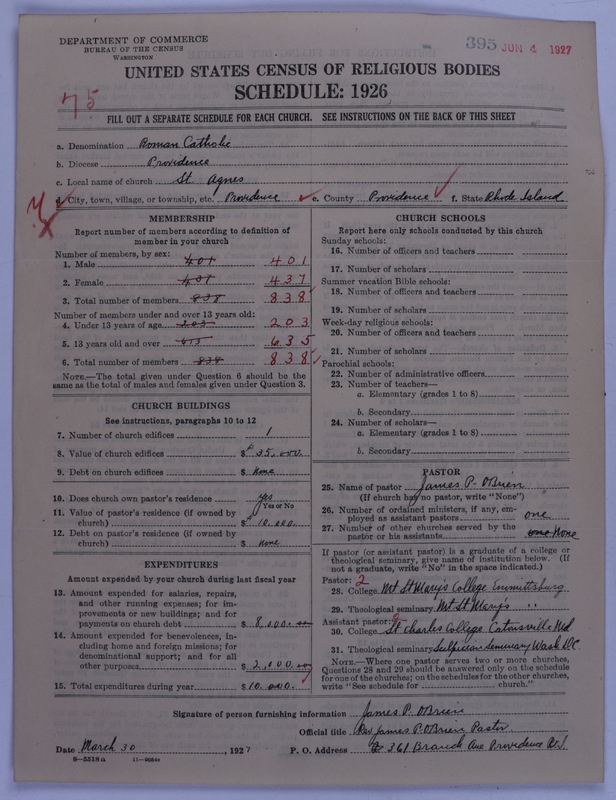 DEPARTMENT OF COMMERCE
BUREAU OF THE CENSUS
WASHINGTON
395 JUN 4 1927
UNITED STATES CENSUS OF RELIGIOUS BODIES
SCHEDULE: 1926
75
FILL OUT A SEPARATE SCHEDULE FOR EACH CHURCH. SEE INSTRUCTIONS ON THE BACK OF THIS SHEET
a. Denomination Roman Catholic
b. Diocese Providence
c. Local name of church St. Agnes
d. City, town, village, or township, etc. Providence e. County Providence f. State Rhode Island
MEMBERSHIP
Report number of members according to definition of
member in your church
Number of members, by sex:
1. Male 401 401
2. Female 437 437
3. Total number of members 838 838
Number of members under and over 13 years old:
4. Under 13 years of age 203 203
5. 13 years old and over 635
6. Total number of members 838 838
NOTE.—The total given under Question 6 should be the
same as the total of males and females given under Question 3.
CHURCH BUILDINGS
See instructions, paragraphs 10 to 12
7. Number of church edifices 1
8. Value of church edifices $ 35,000
9. Debt on church edifices $ None
10. Does church own pastor's residence yes
Yes or No
11. Value of pastor's residence (if owned by
church) $ 10,000
12. Debt on pastor's residence (if owned by
church) $ None
EXPENDITURES
Amount expended by your church during last fiscal year
13. Amount expended for salaries, repairs,
and other running expenses; for im-
provements or new buildings; and for
payments on church debt $ 8,000.00
14. Amount expended for benevolences, in-
cluding home and foreign missions; for
denominational support; and for all
other purposes $ 2,000.00
15. Total expenditures during year $ 10,000.
CHURCH SCHOOLS
Report here only schools conducted by this church
Sunday schools:
16. Number of officers and teachers
17. Number of scholars
Summer vacation Bible schools:
18. Number of officers and teachers
19. Number of scholars
Week-day religious schools:
20. Number of officers and teachers
21. Number of scholars
Parochial schools:
22. Number of administrative officers
23. Number of teachers—
a. Elementary (grades 1 to 8)
b. Secondary
24. Number of scholars—
a. Elementary (grades 1 to 8)
b. Secondary
PASTOR
25. Name of pastor James P. O'Brien
(If church has no pastor, write "None")
26. Number of ordained ministers, if any, em-
ployed as assistant pastors one
27. Number of other churches served by the
pastor or his assistants one None
If pastor (or assistant pastor) is a graduate of a college or
theological seminary, give name of institution below. (If
not a graduate, write "No" in the space indicated.)
Pastor: 2
28. College Mt St Mary's College Emmittsburg
29. Theological seminary Mt St Mary's " "
Assistant pastor:
30. College St Charles College Catonsville Md
31. Theological seminary Sulpician Seminary Wash D.C.
NOTE.—Where one pastor serves two or more churches,
Questions 28 and 29 should be answered only on the schedule
for one of the churches; on the schedules for the other churches,
write "See schedule for church."
Signature of person furnishing information James P. O'Brien
Official title Rev James P. O'Brien Pastor
Date March 30, 1927 P. O. Address 361 Branch Ave Providence R.I.
8—5318a